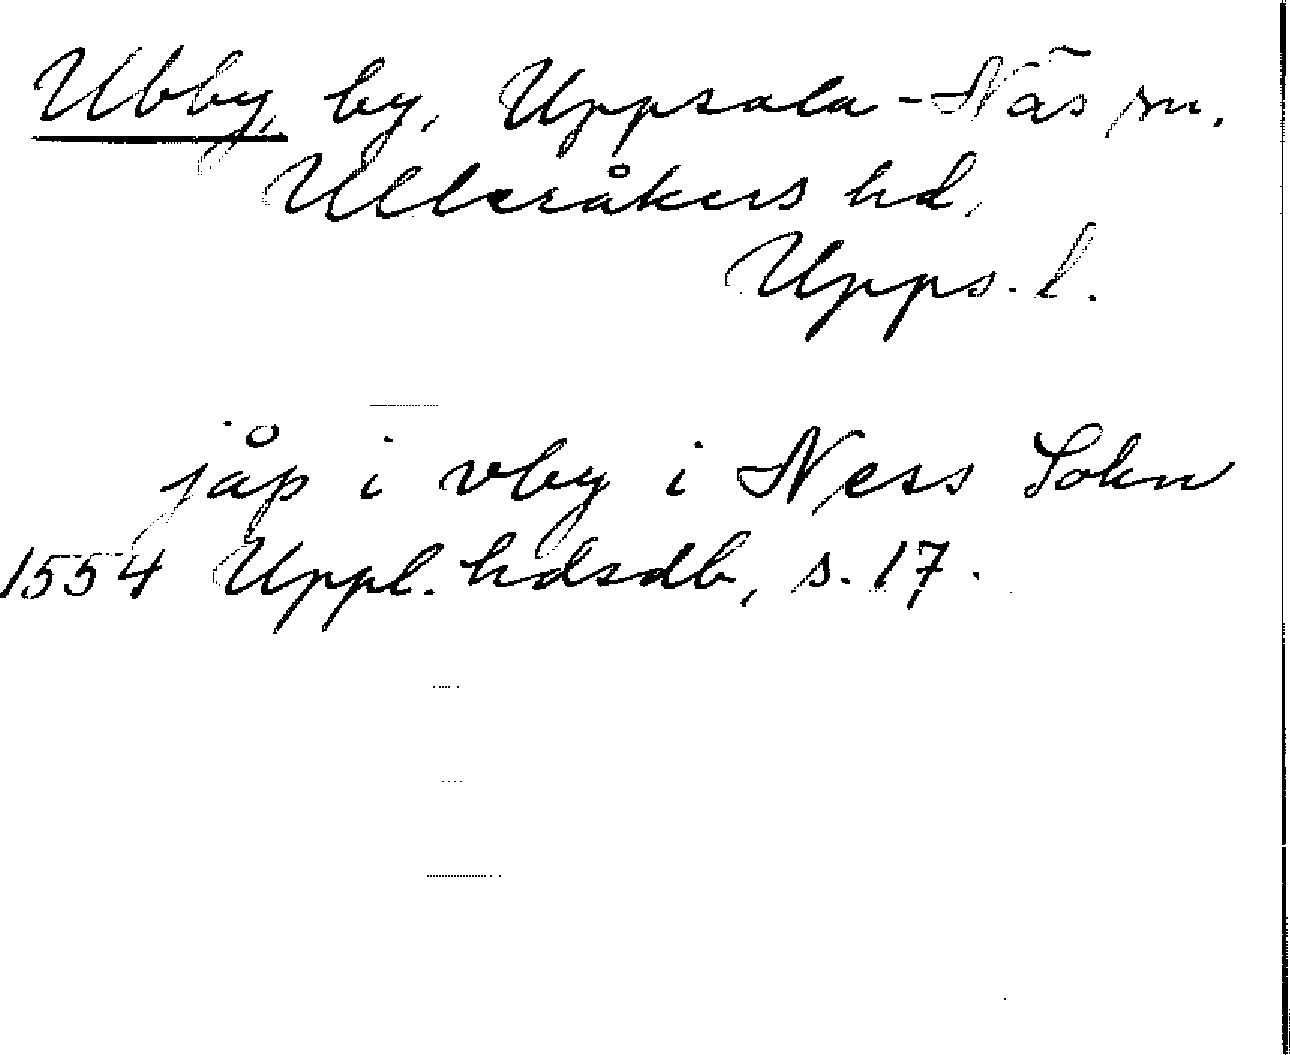 Ubby, by, Uppsala-Näs sn.
Ulleråkers hd,
Upps. l.
jåp i vby i Ness Sokn
1554 Uppl. hdsdb, s. 17.